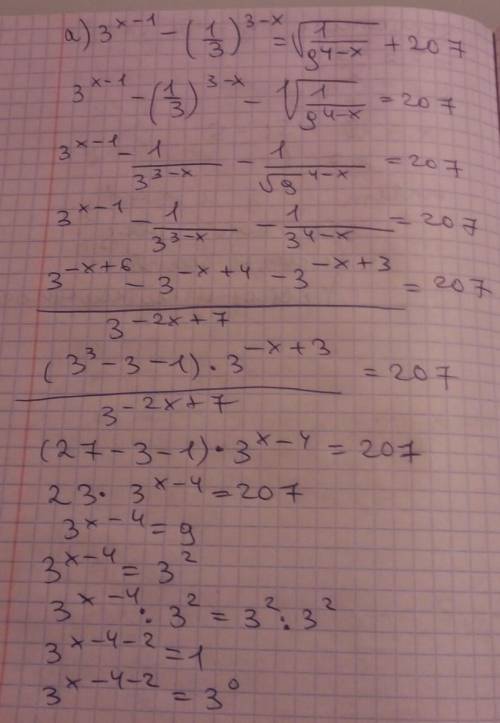 a) 3^{x-1} - (1/3)^{3-x} = √(1/9^{4-x}) + 207
3^{x-1} - (1/3)^{3-x} - √(1/9^{4-x}) = 207
3^{x-1} - 1/3^{3-x} - 1/√9^{4-x} = 207
3^{x-1} - 1/3^{3-x} - 1/3^{4-x} = 207
(3^{-x+6} - 3^{-x+4} - 3^{-x+3})/3^{-2x+7} = 207
((3^3 - 3 - 1) · 3^{-x+3})/3^{-2x+7} = 207
(27 - 3 - 1) · 3^{x-4} = 207
23 · 3^{x-4} = 207
3^{x-4} = 9
3^{x-4} = 3^2
3^{x-4} : 3^2 = 3^2 : 3^2
3^{x-4-2} = 1
3^{x-4-2} = 3^0